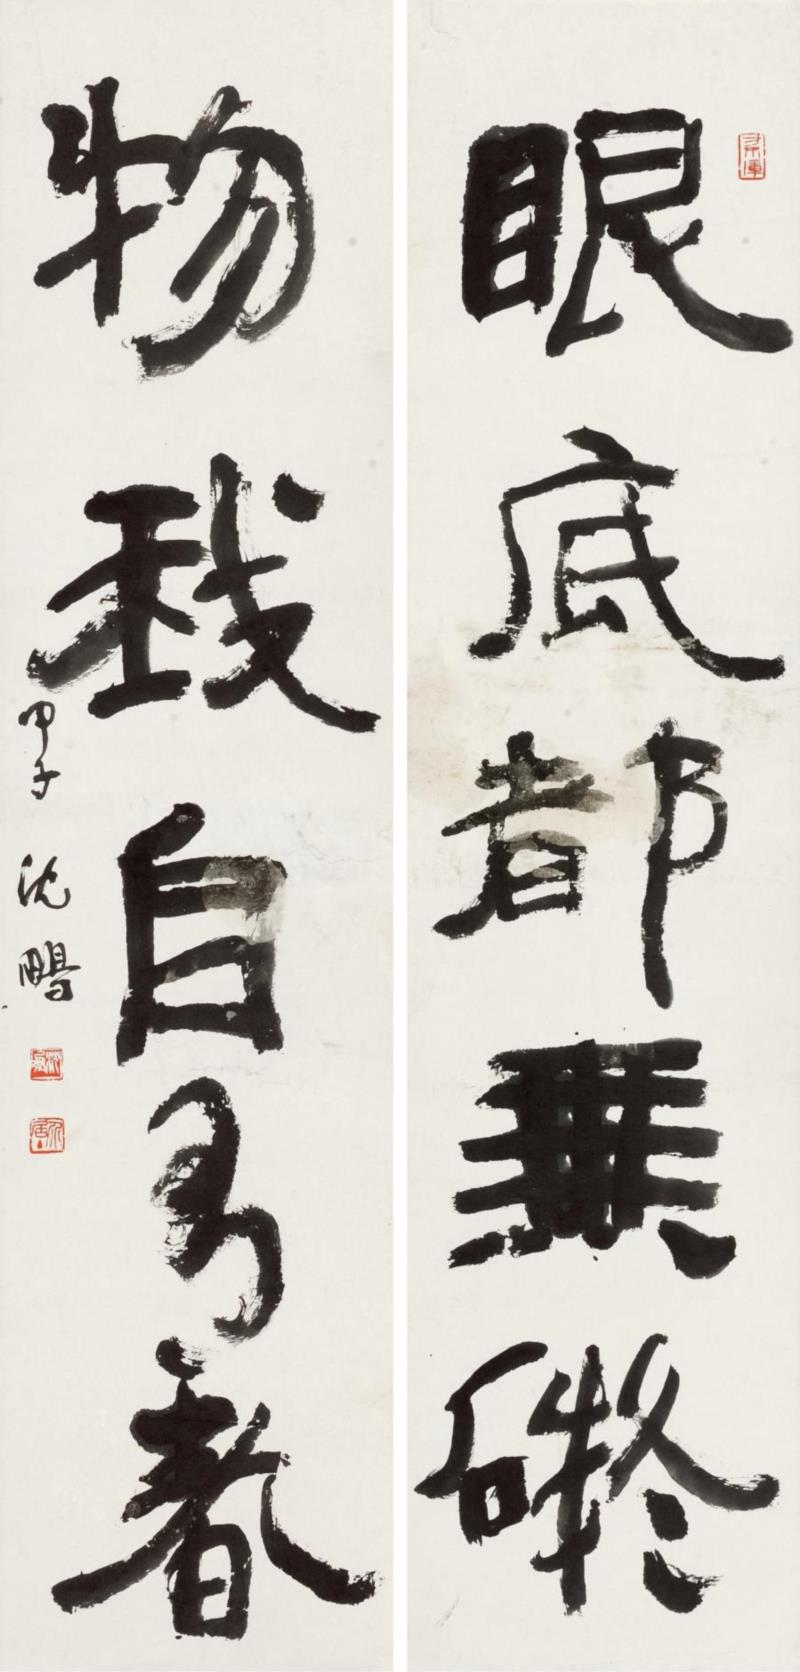 眼底都無礙
物我自春
甲子 沈鵬